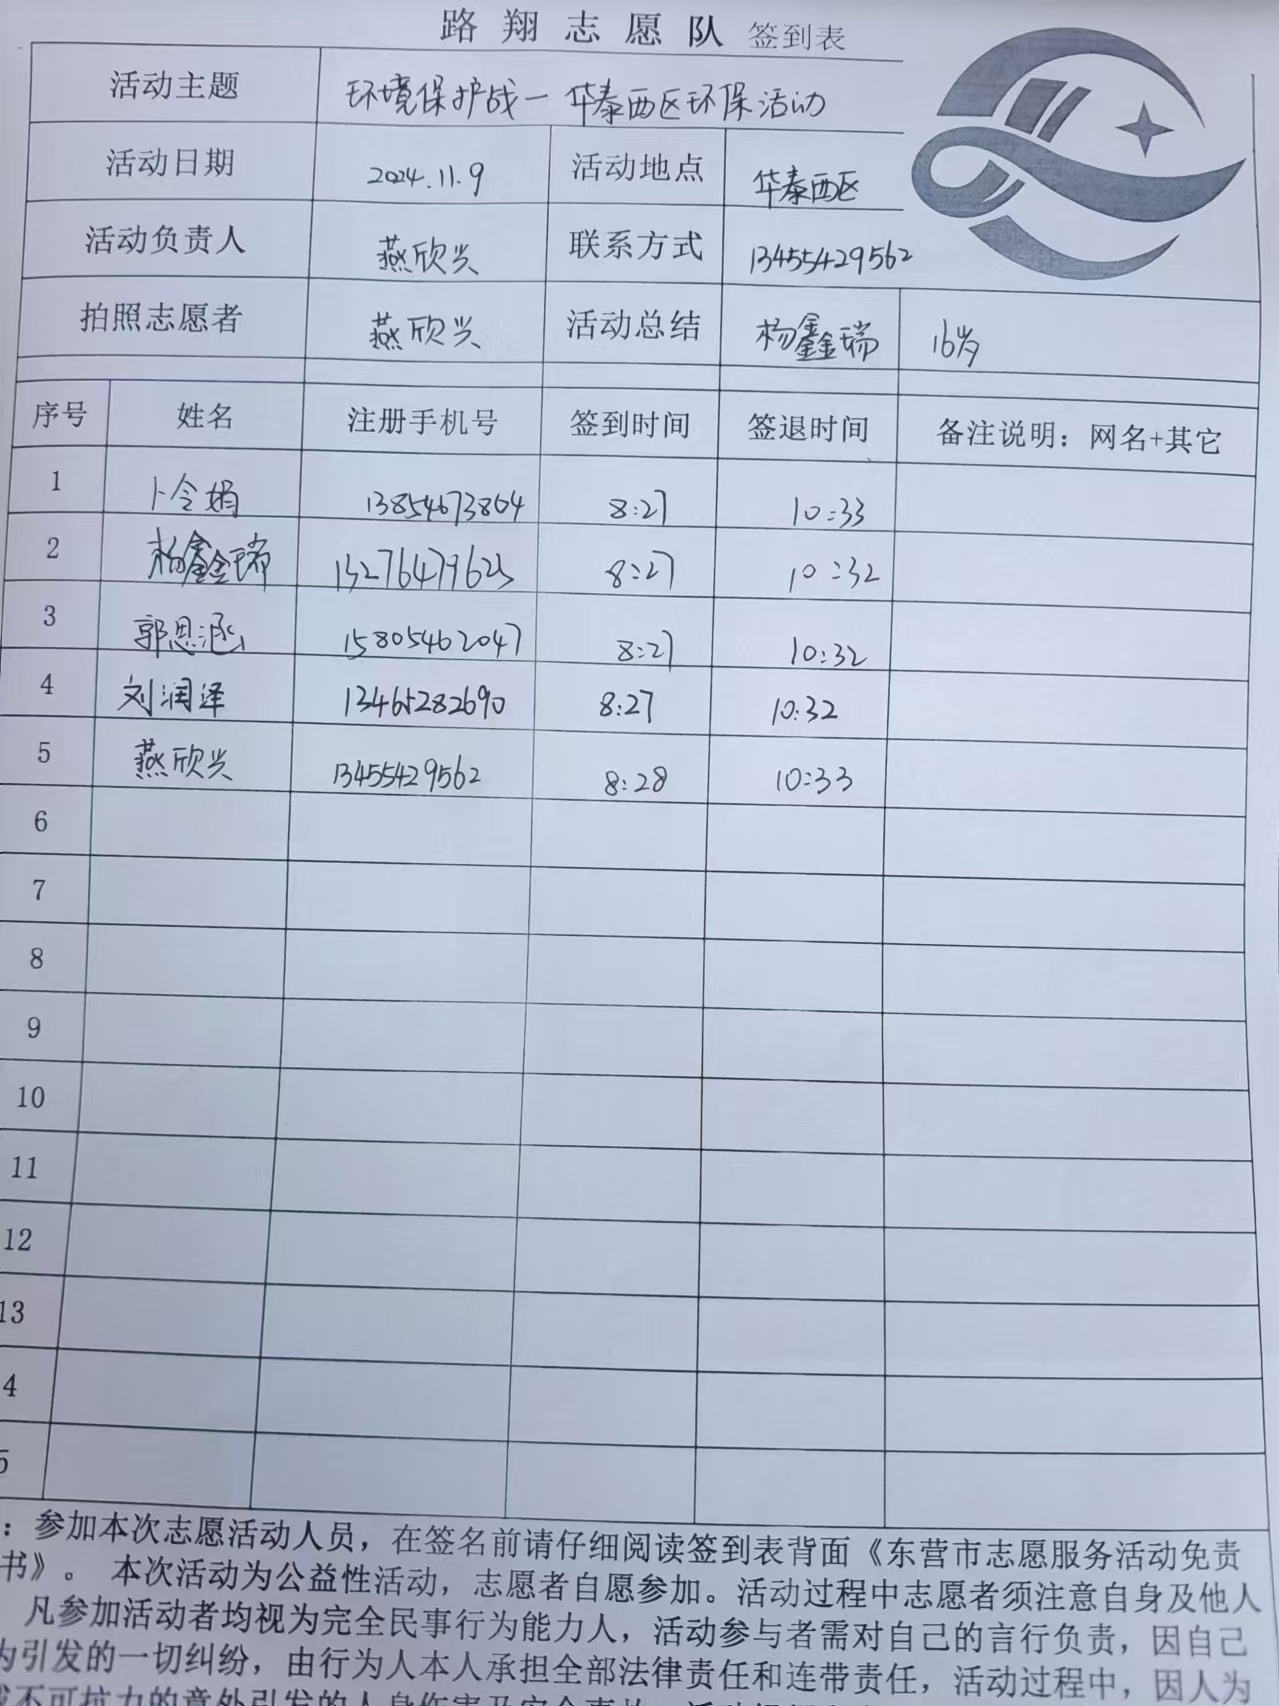 路翔志愿队 签到表
活动主题 环境保护战一华泰西区环保活动
活动日期 2024.11.9 活动地点 华泰西区
活动负责人 燕欣兴 联系方式 13455429562
拍照志愿者 燕欣兴 活动总结 杨鑫瑞 16岁
序号 姓名 注册手机号 签到时间 签退时间 备注说明：网名+其它
1 卜令娟 13854673864 8:27 10:33
2 杨鑫瑞 13276479623 8:27 10:32
3 郭恩涵 15805462047 8:27 10:32
4 刘润泽 13465282690 8:27 10:32
5 燕欣兴 13455429562 8:28 10:33
6
7
8
9
10
11
12
13
4
5
：参加本次志愿活动人员，在签名前请仔细阅读签到表背面《东营市志愿服务活动免责
书》。 本次活动为公益性活动，志愿者自愿参加。活动过程中志愿者须注意自身及他人
凡参加活动者均视为完全民事行为能力人，活动参与者需对自己的言行负责，因自己
为引发的一切纠纷，由行为人本人承担全部法律责任和连带责任，活动过程中，因人为
或不可抗力的意外引发的人身伤害及安全事故